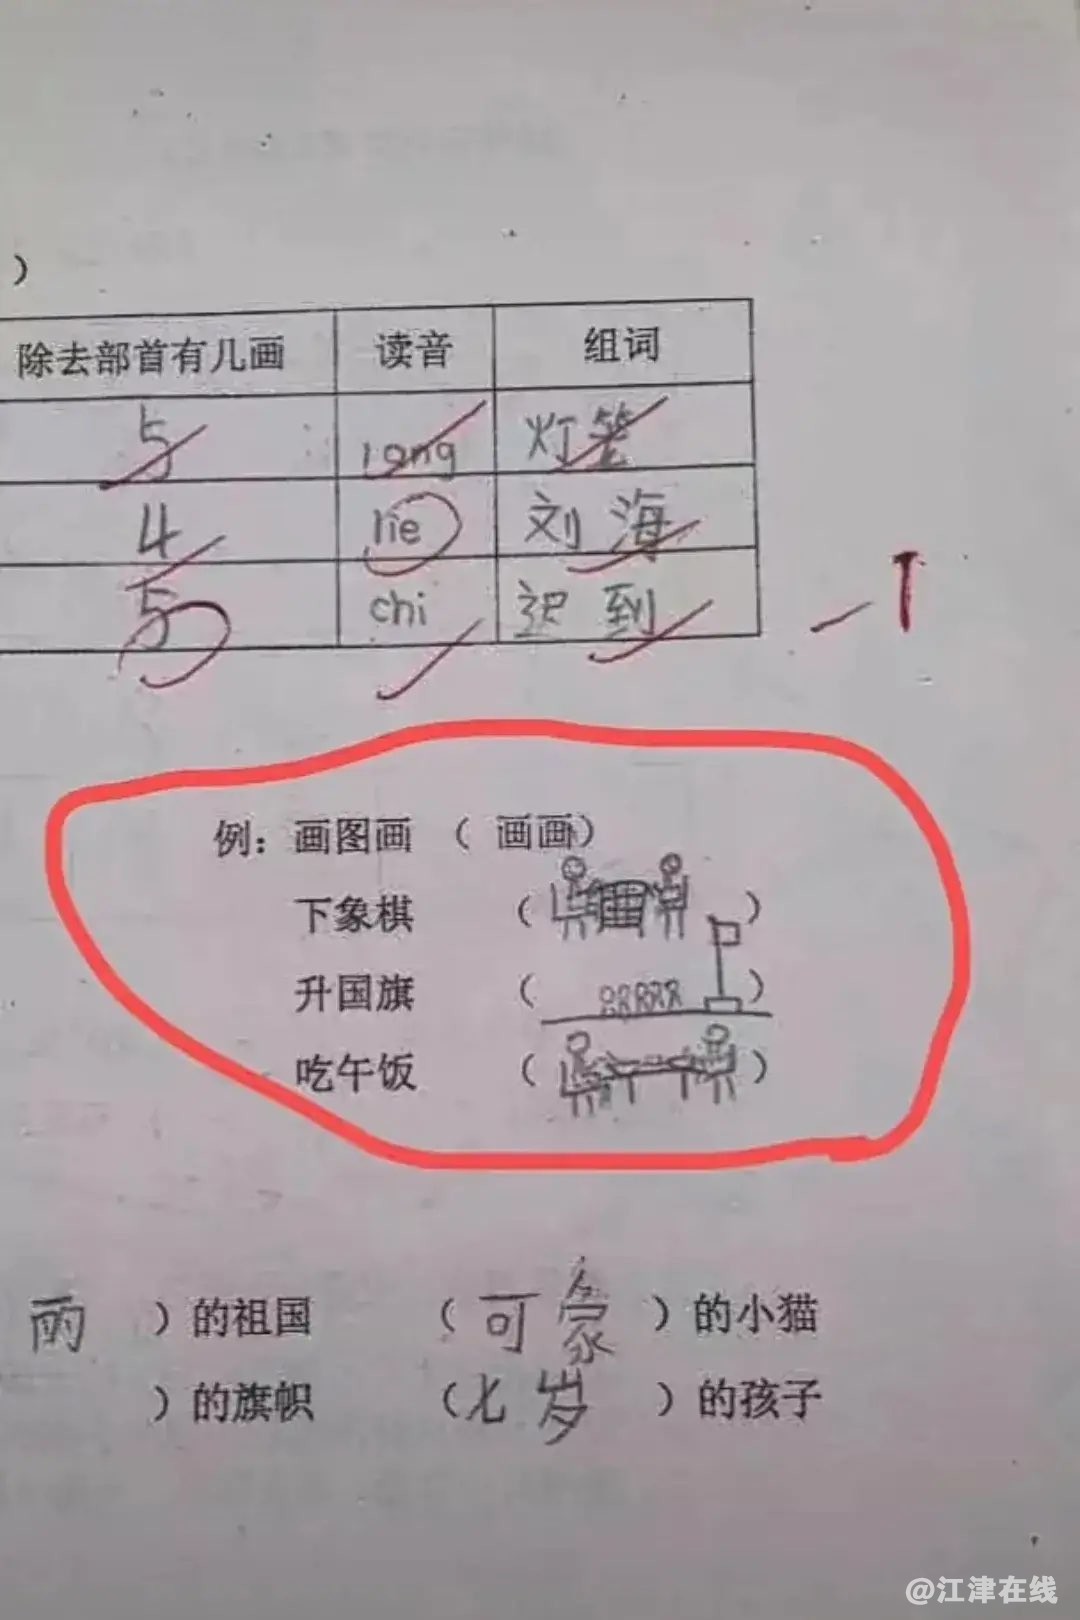 ）
除去部首有几画 读音 组词
5 long 灯笼
4 lie 刘海
5 chi 迟到
例：画图画 （ 画画）
下象棋 （ ）
升国旗 （ ）
吃午饭 （ ）
雨 ）的祖国 （ 可象 ）的小猫
）的旗帜 （七岁 ）的孩子
@江津在线